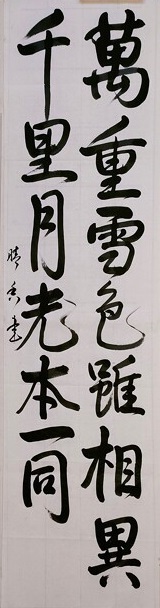 萬重雪色雖相異
千里月光本一同
晴香書